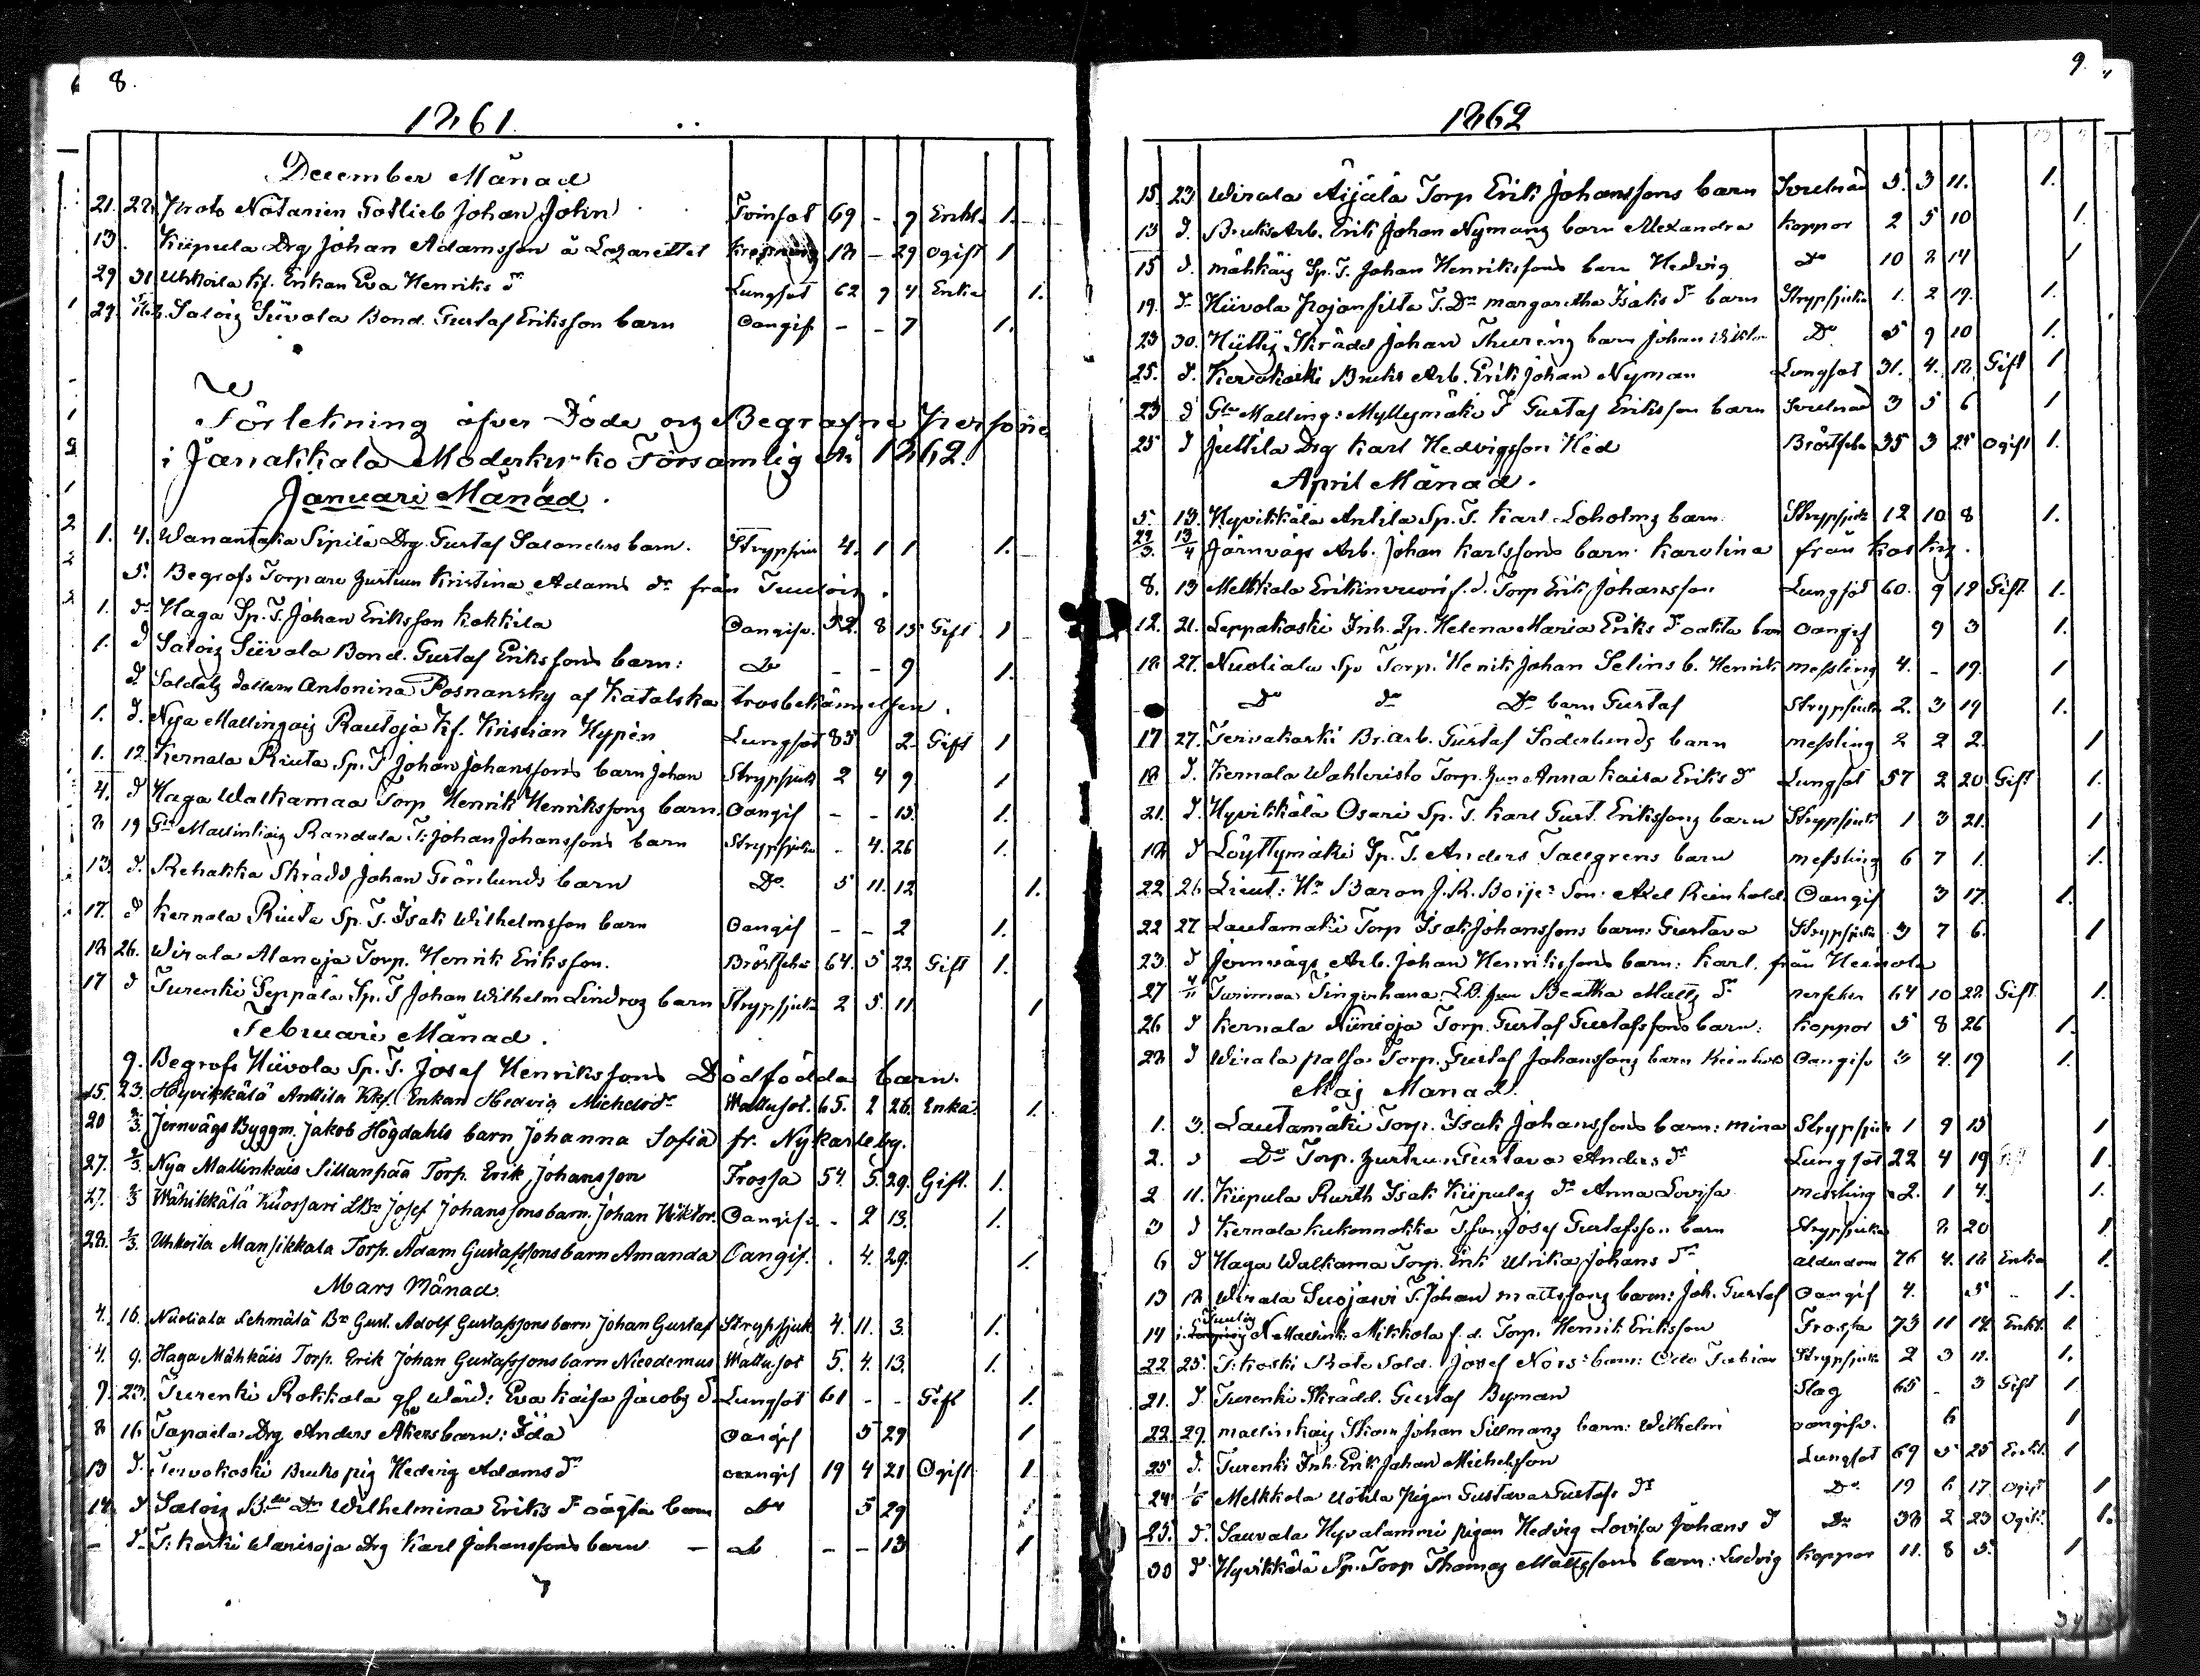 8.
1861.
December Månad
21. 22. Proto Notarien Gotlieb Johan John Tvinsot 69 - 9 Enkl. 1.
13. Kiipula Drg Johan Adamsson å Lazarettet 18 - 29 ogift 1
29 31 Uhkoila Kf. Enkan Eva Henriks dr Lungsot 62 9 4 Enka 1.
29. Saloig Siivola Bond. Gustaf Eriksson barn Oangif - - 7 1.
Förtekning öfver Döde og Begrafne Persone
i Janakkala Moderkyrko Församlig År 1862.
Januari Månad.
1. 4. Wanantaka Sipilä Drg. Gustaf Salanders barn. Strypsju 4. 1 1 1.
5. Begrafs Torpare hustrun Kristina Adams dr från Tuulois.
1. dr Haga Sp. T. Johan Eriksson Kokkila Oangifv. 52. 8 15 Gift 1
1. d Saloig Siivola Bond. Gustaf Erikssons barn: Do - - 9 1.
d Soldatz Antonina Posnansky af Katolska trosbekännelsen.
1. d. Nya Mallingaig Rautoja Kf. Kristian Hypén Lungsot 83 2 Gift 1
1. 12 Kernala Riuta Sp. T Johan Johanssons barn Johan Strypsjuk 2 4 9 1
4. d Haga Walkamaa Torp Henrik Henrikssong barn. Oangif - - 15. 1.
8 19 Gla Mallinkaig Randala T. Johan Johanssons barn Strypsjuka - 4. 26 1.
13. d. Rehakka Skrädd Johan Grönlunds barn Do. 5 11. 12 1.
17. d Kernala Riuta Sp. T. Isak Wilhelmsson barn Oangif - - 2 1.
18 26. Wirala Alanoja Torp. Henrik Eriksson. Bröstfeber 64. 5 22 Gift 1.
17 d Turenki Seppälä Sp. T Johan Wilhelm Lindroz barn Strypsjuka 2 5. 11. 1
Februari Månad.
9. Begrafs Hiivola Sp. T. Josef Henrikssons Dödfödda barn.
15. 23. Hyvikkälä Anttila Kkf. Enkan Hedvig Michels dr Wattusot. 65. 2 26. Enka. 1.
20 2/3. Jernvägs Byggm. Jakob Högdahls barn Johanna Sofia fr. Nykarleby.
27. 2/3. Nya Mallinkais Sillanpää Torp. Erik Johansson Frossa 54. 5. 29. Gift. 1.
27. 2/3 Wähikkälä Kuossari LBr Josef Johanssons barn. Johan Wiktor. Oangifv. - 2 13. 1.
28. 2/3. Uhkoila Mansikkala Torp. Adam Gustafssons barn Amanda Oangif. . 4. 29. 1.
Mars Månad.
4. 16. Nuoliala Lehmälä Br Gust. Adolf Gustafssons barn Johan Gustaf Strypsjuk. 4. 11. 3. 1.
4. 9. Haga Mähkäis Torp. Erik Johan Gustafssons barn Nicodemus Wattusot 5. 4. 13. 1.
9. 23. Turenki Rokkala gl Wärd: Eva Kaisa Jacobz d Lungsot 61 - - Gift 1.
8 16 Tapaila Drg Anders Akers barn: Ida Oangif 5 29 1
13 d. Tervakoski Bruks pig Hedvig Adams dr oangif 19 4 21 Ogift 1
18 d Saloig Wilhelmina Eriks d oägta barn Do 5 29
- d T: koski Warisoja Drg Karl Johanssons barn - Do - - 13 1
9
1862
15. 23 Wirala Äijälä Torp Erik Johanssons barn 5. 3 11. 1.
13 d. Bruks Arb. Erik Johan Nymanz barn Alexandra Koppor 2 5 10 1.
15 d. Mähkäig Sp. T. Johan Henrikssons barn Hedvig Do 10 2 14 1
19. d. Hiivola T. Dr Margaretha Isaks dr barn Strypsjuka 1. 2 19. 1.
23 30. Hüttiz Skrädd Johan Thurénz barn Johan Viktor Do 5 9 10 1.
25. d. Kervakoski Bruks Arb. Erik Johan Nyman Lungsot 31. 4. 12. Gift 1
23 d Gla Malling: Myllymäki T Gustaf Eriksson barn 3 5 6 1
25 d Juttila Drg Karl Hedvigsson Hed Bröstfeber 35 3 25 Ogift 1.
April Månad.
5. 13. Hyvikkälä Anttila Sp. T. Karl Loholmz barn Strypsjuk 12 10 8 1.
29/3. 13/4 Järnvägs Arb. Johan Karlssons barn. Karolina från
8. 13 Melkkala Erikinvuori f. d. Torp Erik Johansson Lungsot 60. 9 12 Gift 1.
12. 21. Leppakoski Inh. Sp. Helena Maria Eriks d oäkta barn Oangif 9 3 1.
18 27. Nuoliala Sp Torp. Henrik Johan Selins b. Henrik messling 4. - 19. 1
Do do Do barn Gustaf Strypsjuka 2. 3 19 1.
17 27. Tervakoski Br. arb. Gustaf Söderlunds barn messling 2 2 2. 1
18 d. Kernala Wahteristo Torp. hun Anna Kaisa Eriks dr Lungsot 57 2 20. Gift 1.
21. d. Hyvikkälä Osari Sp. T. Karl Gust. Erikssong barn Strypsjuk 1 3 21. 1
18 d Löyttymäki Sp. T. Anders Tallgrens barn messling 6 7 1. 1.
22 26 Lieut: Hr Baron J. R. Boijes Son: Axel Reinhold Oangif 3 17. 1.
22 27. Lautamäki Torp Isak Johanssons barn: Gustava Strypsjuka 3 7 6. 1
23. d Jernvägs Arb. Johan Henrikssons barn: Karl. från Heinola
27 4/11 Turimaa Beatha Mattz dr 64 10 22 Gift 1.
26 d Kernala Niinioja Torp. Gustaf Gustafssons barn: Koppor 5 8 26 1.
28 d Wirala Torp. Gustaf Johanssons barn Reinhold Oangifv 3 4. 19 1.
Maj Månad.
1. 3. Lautamäki Torp. Isak Johanssons barn: Mina Strypsjuk 1 9 15 1
2. d Do Torp. hustrun Gustava Anders dr Lungsot 22 4 19 Gift 1.
2 11. Kiipula Rusth Isak Kiipulas dr Anna Lovisa messling 2. 1 4. 1.
3 d Kernala Kukonnokka Josef Gustafsson barn Strypsjuka 8 20 1
6 d Haga Walkama Torp. Enk Ulrika Johans dr ålderdom 76 4. 18 Enka 1.
13 18 Wirala Suojärvi T. Johan Mattssong barn: Joh. Gustaf Oangif 4. 5 - 1.
14 N Mallink. Mikkola f. d. Torp. Henrik Eriksson Frossa 73 11 14 Enkl. 1.
22 25. T. koski Rote Sold. Josef Nors: barn: Otto Fabian Strypsjuka 2 3 11. 1.
21. d. Turenki Skrädd. Gustaf Byman Slag 65 - 3 Gift 1
22. 29. Mallinkaig Johan Sillmanz barn: Wilhelm oangifv. 6 1
25 d. Turenki Inh. Erik Johan Michelsson Lungsot 69 5 25 Enkl. 1
24 1/6 Melkkola Uotila Pigan Gustava Gustafs dr Do. 19 6 17. Ogift 1
25. d. Sauvala Hyvalammi pigan Hedvig Lovisa Johans d Do 38 2 23 Ogift. 1.
30 d Hyvikkälä Sp. Torp Thomas Mattssons barn: Ludvig Koppor 11. 8 5. 1